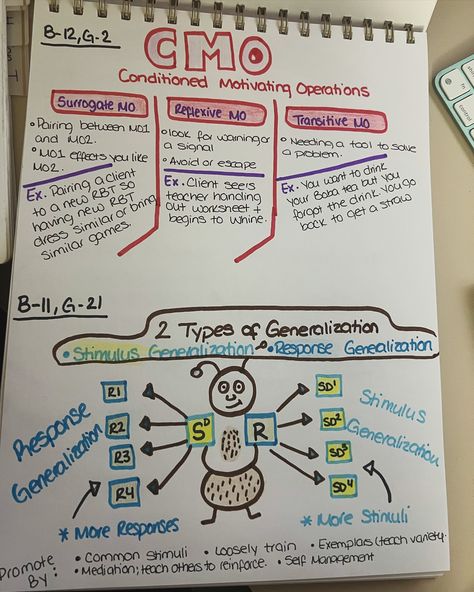 B-12, G-2
CMO
Conditioned Motivating Operations
Surrogate MO
• Pairing between MO1
and MO2.
• MO1 effects you like
MO2.
Ex. Pairing a client
to a new RBT so
having new RBT
dress similar or bring
similar games.
Reflexive MO
• look for warning or
a signal
• Avoid or escape
Ex. Client sees
teacher handing
out worksheet +
begins to whine.
Transitive MO
• Needing a tool to solve
a problem.
Ex. You want to drink
your Boba tea but you
forgot the drink you go
back to get a straw
B-11, G-21
2 Types of Generalization
• Stimulus Generalization • Response Genealization
Response
Generalization
R1
R2
R3
R4
SD
R
SD1
SD2
SD3
SD4
Stimulus
Generalization
* More Responses
* More Stimuli
Promote
By:
• Common stimuli • Loosely train • Exemplars (teach variety
• Mediation; teach others to reinforce. • Self Management